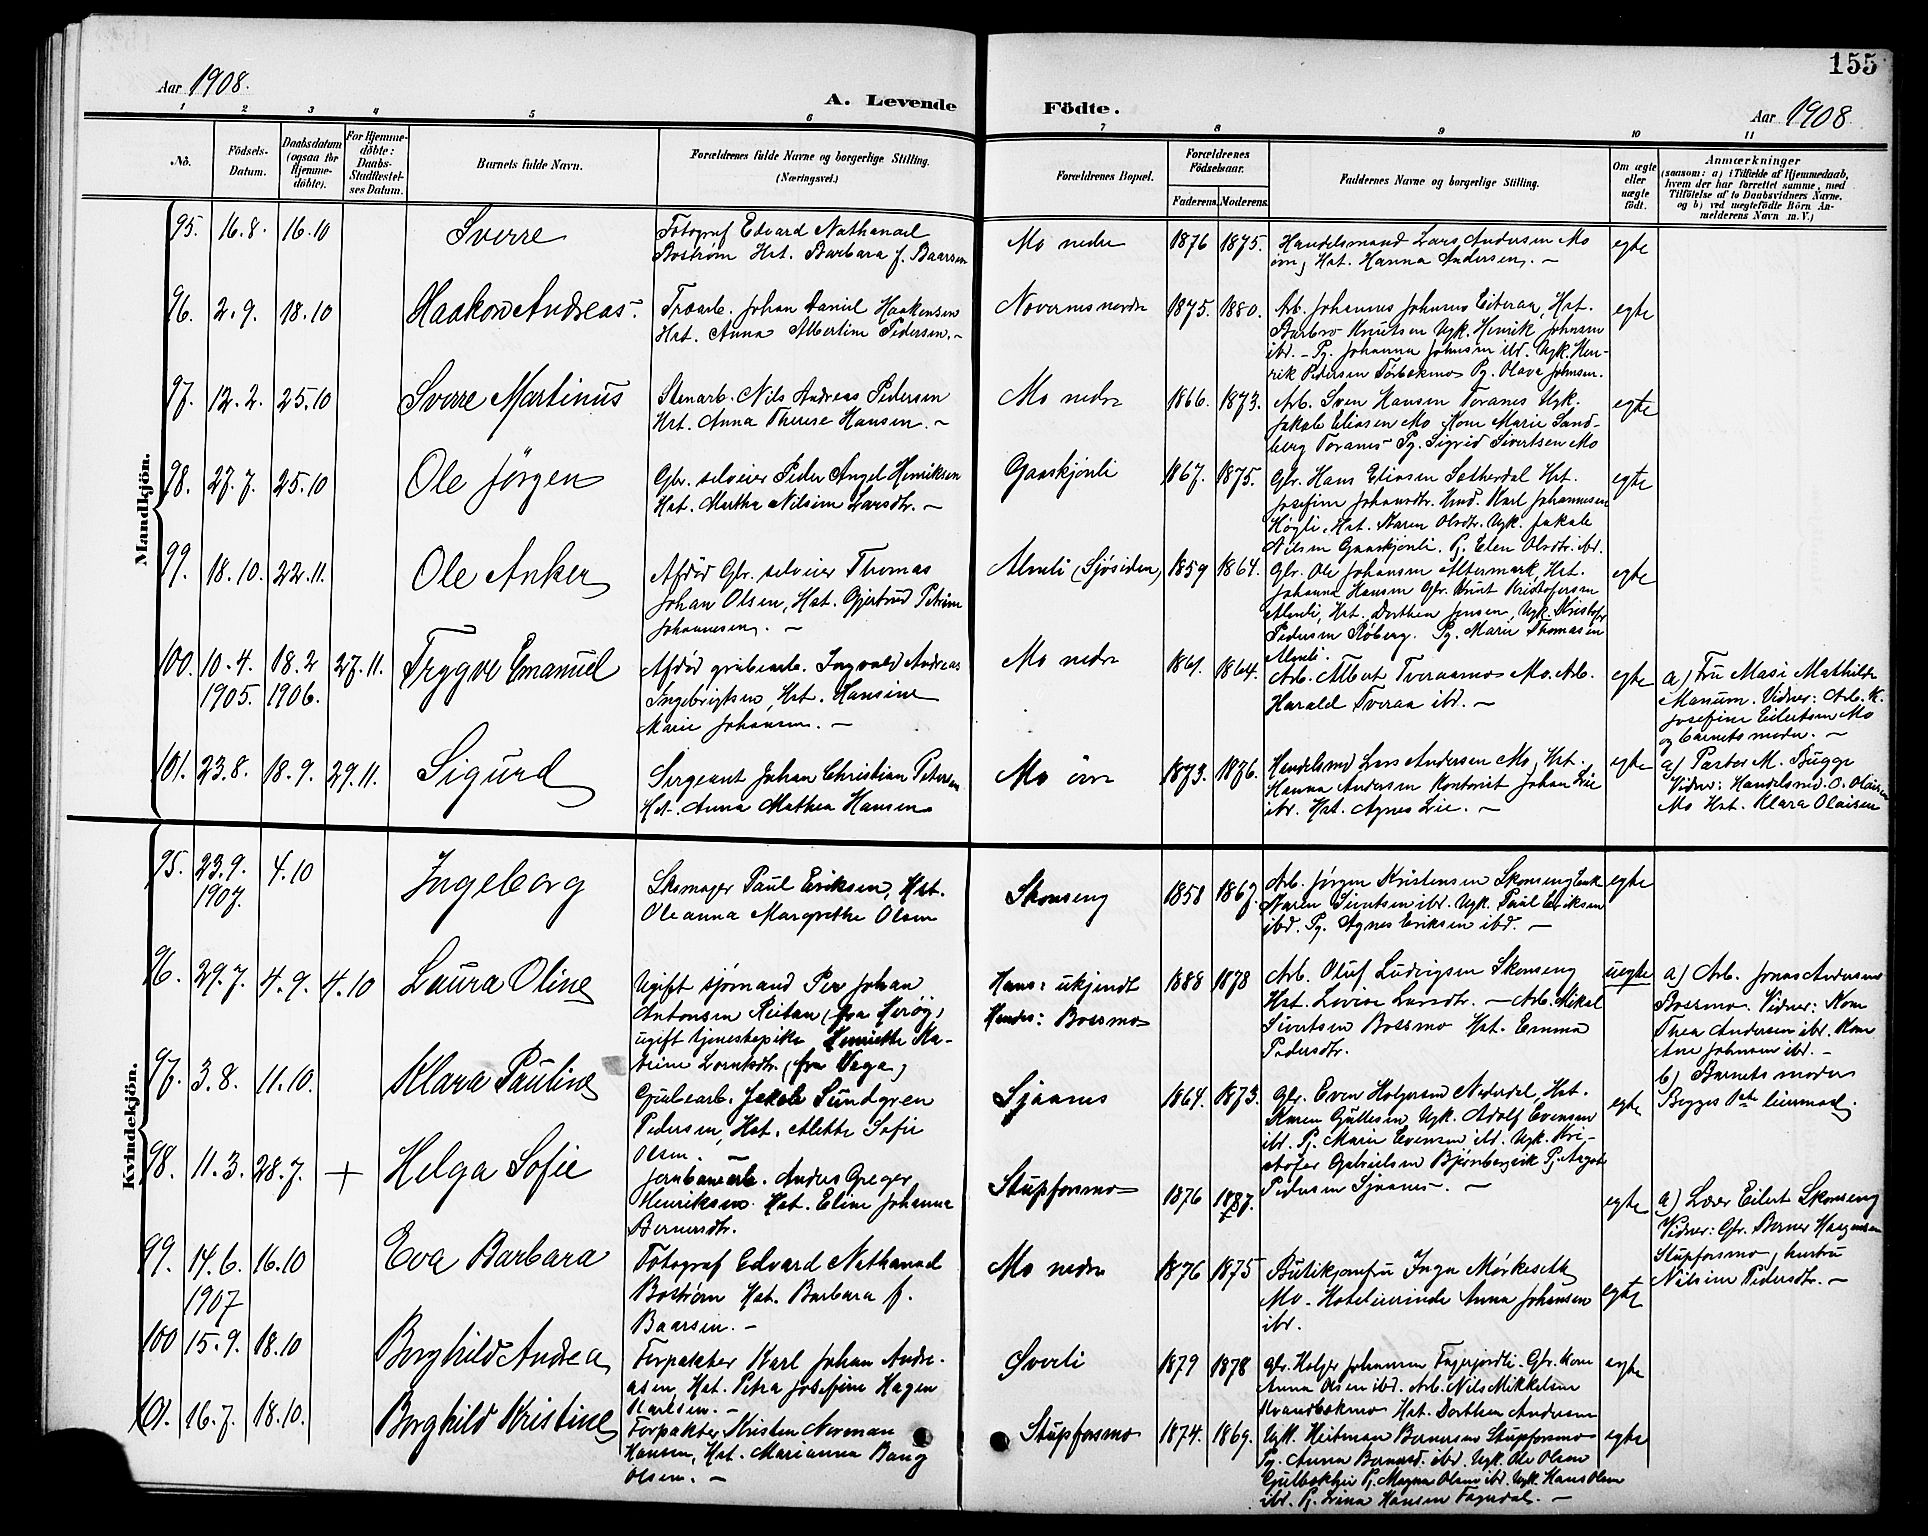 155
Aar 1908.
A. Levende Födte.
Aar 1908.
1 2 3 4 5 6 7 8 9 10 11
No.
Födsels-Datum.
Daabsdatum (ogsaa for Hjemmedöbte).
For Hjemmedöbte: Daabs-Stadfestelses Datum.
Barnets fulde Navn.
Forældrenes fulde Navne og borgerlige Stilling. (Næringsvei.)
Forældrenes Bopæl.
Forældrenes Födselsaar.
Faderens. Moderens.
Faddernes Navne og borgerlige Stilling.
Om ægte eller uægte födt.
Anmærkninger
(saasom: a) i Tilfælde af Hjemmedaab, hvem der har forrettet samme, med Tilföielse af to Daabsvidners Navne. og b) ved uægtefödte Börn Anmelderens Navn m. V.)
Mandkjön.
95. 16.8. 16.10 Sverre
Fotograf Edvard Nathanael
Bostrøm Hst. Barbara f. Baarsen
Mo nedre 1876 1875.
Handelsmand Lars Andersen Mo
öv, Hst. Hanna Andersen. –
egte
96. 2.9. 18.10 Haakon Andreas.
Træarb. Johan Daniel Haakensen
Hst. Anna Albertine Pedersen. –
Novernesnordre 1875. 1880.
Arb. Johannes Johnsen Eiteraa, Hst.
Barbro Knutsen Ugk. Henrik Johnsen
ibd. – Pg. Johanna Johnsen ibd. Ugk. Hen-
rik Pedersen Pg. Olava Johnsen.
egte
97. 12.2. 25.10 Sverre Martinus
Stenarb. Nils Andreas Pedersen
Hst. Anna Therese Hansen. –
Mo nedre 1866. 1873.
Arb. Sven Hansen Toranes Ugk.
Jakob Eliasen Mo Kone Marie Sand-
berg Toranes Pg. Sigrid Sivertsen Mo
egte
98. 27.7. 25.10 Ole Jørgen
Gbr. selveier Peder Angel Henriksen
Hst. Martha Nilsine Larsdtr. –
Gaaskjønli 1867. 1875.
Gbr. Hans Eliasen Sætherdal Hst.
Josefine Johansdtr. Karl Johannesen
Høgli, Hst. Karen Olsdtr. Ugk. Jakob
Nilsen Gaaskjønli. P. Elen Olsdtr. ibd.
egte
99. 18.10. 22.11. Ole Anker
Afdød Gbr. selveier Thomas
Johan Olsen, Hst. Gjertrud Petrine
Johannesen. –
Almli (Sjösiden) 1859 1864.
Gbr. Ole Johansen Altermark, Hst.
Johanna Hansen Gbr. Knut Kristofersen
Almli, Hst. Dorthea Jensen, Ugk. Kristofer
Pedersen Røberg. Pg. Marie Thomasen
Almli.
egte
100. 10.4. 1905. 18.2 1906. 27.11. Trygve Emanuel
Afdød grubearb. Ingvald Andreas
Ingebrigtsen, Hst. Hansine
Marie Johansen. –
Mo nedre 1861. 1864.
Arb. Albert Tveraamo Mo. Arb.
Harald Tveraa ibr. –
egte
a) Fru Masi Mathilde
Mansum. Vidner: Arb. K.
Josefine Eilertsen Mo
og barnets moder. –
101. 23.8. 18.9. 29.11. Sigurd
Sergeant Johan Christian Petersen
Hst. Anna Mathea Hansen
Mo övre 1873. 1876.
Handelsmd Lars Andersen Mo, Hst.
Hanna Andersen Kontorist Johan Lie
ibr. Hst. Agnes Lie. –
egte
a) Pastor M. Bugge
Vidner: Handelsmd. O. Olaisen
Mo Hst. Klara Olaisen
Kvindekjön.
95. 23.9. 1907. 4.10 Ingeborg
Skomager Paul Eriksen, Hst.
Oleanna Margrethe Olsen
Skonseng 1858 1867.
Arb. Jørgen Kristensen Skonseng Enk
Karen Sivertsen ibr. Ugk. Paul Eriksen
ibd. Pg. Agnes Eriksen ibd. –
egte
96. 29.7. 4.9. 4.10 Laura Oline
Ugift sjømand Per Johan
Antonsen Reitan (fra Herøy)
ugift tjenestepike Henriette Ka-
trine Lorntsdtr. (fra Vega)
Hans: ukjendt
Hendes: Bossmo
1888 1878
Arb. Oluf Ludvigsen Skonseng
Hst. Lovise Larsdtr. – Arb. Mikal
Sivertsen Bossmo Hst. Emma
Pedersdtr.
uegte
a) Arb. Jonas Andersen
Bossmo. Vidner: Kone
Thea Andersen ibr. Kone
Ane Johnsen ibd. –
b) Barnets moder
Begges 1ste leiermaal.
97. 3.8. 11.10. Klara Pauline
Grubearb. Jakob Sundgren
Pedersen, Hst. Alette Sofie
Olsen. –
Sjaanes 1864. 1873.
Gbr. Even Holgersen Nederdal, Hst.
Karen Gullesen Ugk. Adolf Evensen
ibd. P. Marie Evensen ibd. Ugk. Kri-
stofer Gabrielsen Bjørnbærvik P.
Pedersen Sjaanes. –
egte
98. 11.3. 28.7. + Helga Sofie
Jernbanearb. Anders Greger
Henriksen. Hst. Eline Johanna
Bernersdtr.
Stupforsmo 1876 1887.
egte
a) Lærer Eilert Skonseng
Vidner: Gbr. Berner Haagensen
Stupforsmo, hustru
Nilsine Pedersdtr. –
99. 14.6. 1907 16.10 Eva Barbara
Fotograf Edvard Nathanael
Bostrøm Hst. Barbara f.
Baarsen. –
Mo nedre 1876 1875
Butikjomfru Inga Mørkeseth
Mo. Hotelierinde Anna Johansen
ibr.
egte
100 15.9. 18.10 Borghild Andrea
Forpakter Karl Johan Andre-
asen, Hst. Petra Josefine Hagen
Karlsen. –
Øverli 1879 1878
Gbr. Holger Johansen Fagerjordli. Gbr. Kone
Anna Olsen ibd. Arb. Nils Mikkelsen
Hst. Dorthea Andersen
egte
101. 16.7. 18.10. Borghild Kristine
Forpakter Kristen Norman
Hansen, Hst. Marianna Bang
Olsen. –
Stupforsmo 1874. 1869.
Ugk. Heitman Bernersen Stupforsmo
Pg. Anna Bernersd. ibr. Ugk. Ole Olsen
P. Magna Olsen ibd. Ugk. Hans Olsen
ibr. P. Hansen Fagerdal. –
egte